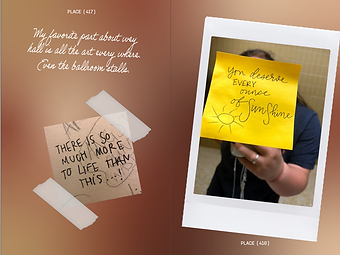 PLACE (417)
My favorite part about wey
hall is all the art every where.
Even the ballroom stalls.
THERE IS SO
MUCH MORE
TO LIFE THAN
THIS...!
You deserve
EVERY
ounce
of Sunshine
PLACE (418)